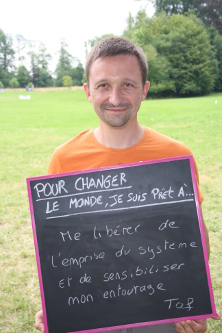 POUR CHANGER
LE MONDE, JE SUIS PRÊT À...
Me libérer de
l'emprise du système
et de sensibiliser
mon entourage
Taf